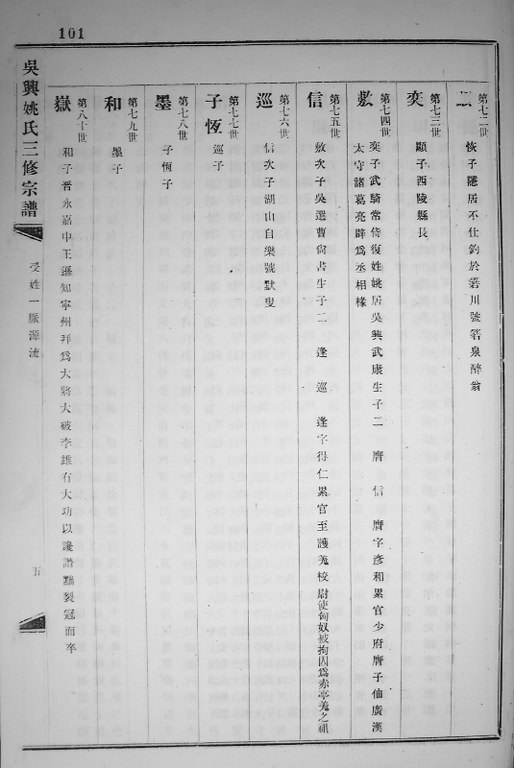 101
第七二世
恢子隱居不仕釣於箬川號箬泉醉翁
第七三世
奕
顯子西陵縣長
第七四世
敷
奕子武騎常侍復姓姚居吳興武康生子二 膺 信 膺字彥和累官少府膺子伷廣漢
太守諸葛亮辟爲丞相椽
第七五世
信
敷次子吳選曹尙書生子二 逢 巡 逢字得仁累官至護羗校尉使匈奴被拘因爲赤亭羗之祖
第七六世
巡
信次子湖山自樂號默叟
第七七世
子恆
巡子
第七八世
墨
子恆子
第七九世
和
墨子
第八十世
嶽
和子晉永嘉中王遜知寧州拜爲大將大破李雄有大功以讒譖黜裂冠而卒
吳興姚氏三修宗譜
受姓一脈源流
五